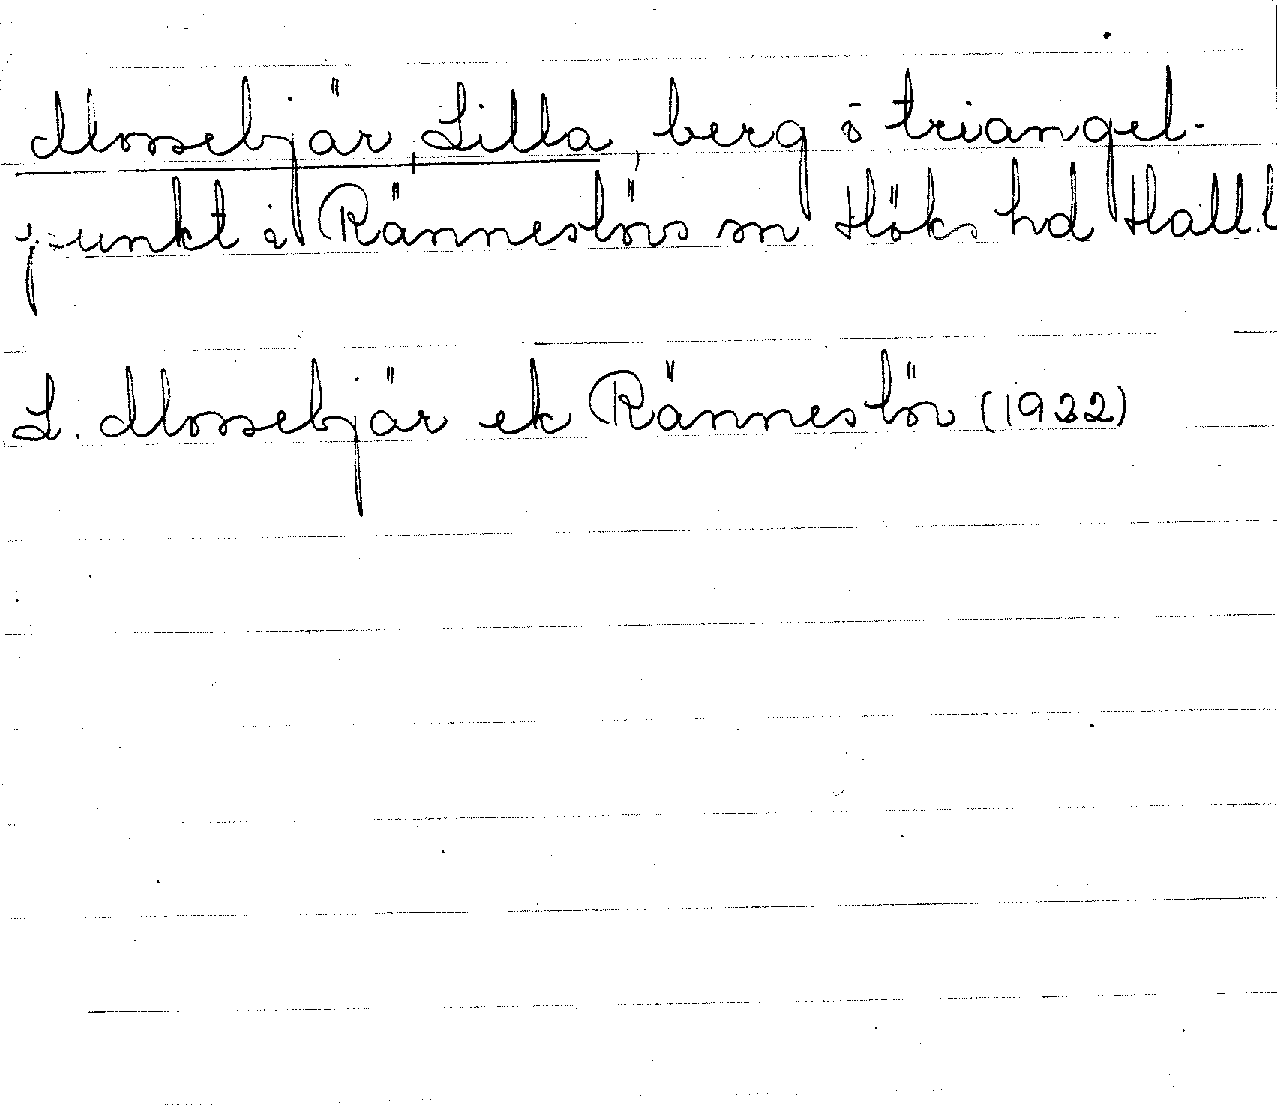 Mossebjär, Lilla, berg o triangel-
punkt i Ränneslövs sn Höks hd Hall. l
L. Mossebjär ek Ränneslöv (1932)